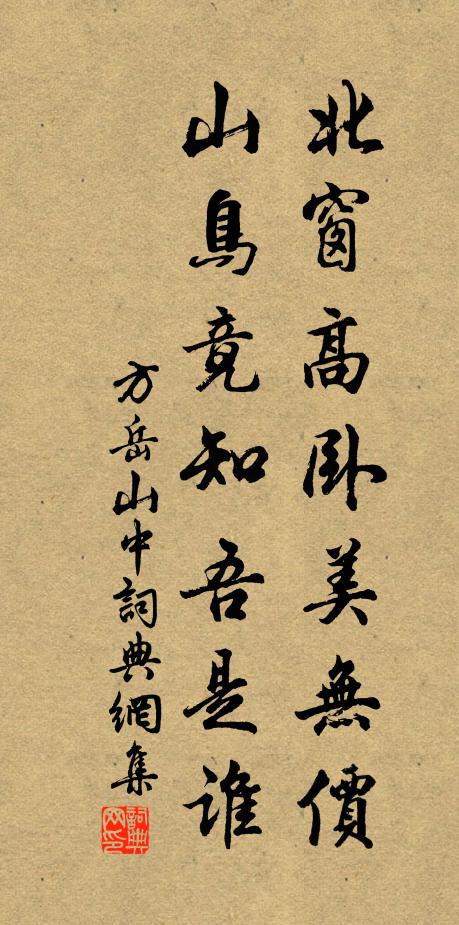 北窗高卧美無價
山鳥竟知吾是誰
方岳山中詞典網集
詞典網印